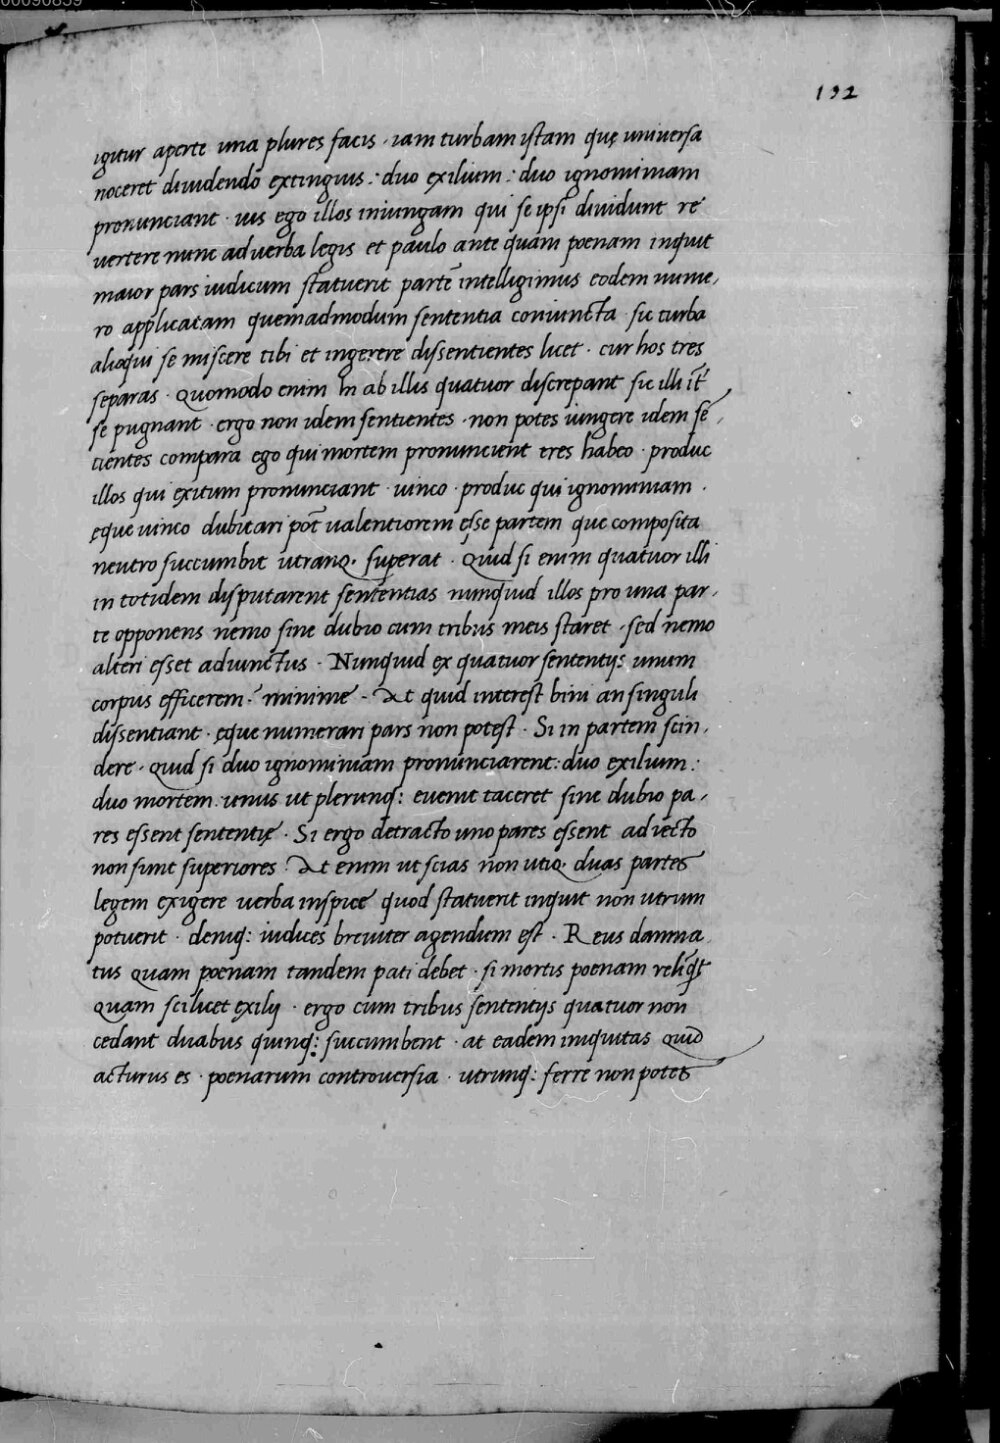 00090859
132
igitur aperte una plures facis · iam turbam istam quę universa
noceret dividendo extinguis : duo exilium : duo ignominiam
pronunciant · vis ego illos iniungam qui se ipsi dividunt re
vertere nunc ad verba legis et paulo ante quam poenam inquit
maior pars iudicum statuerit partē intelligimus eodem nume,
ro applicatam quemadmodum sententia coniuncta · sic turba
alioqui se miscere tibi et ingerere dissentientes licet · cur hos tres
separas · Quomodo enim hi ab illis quatuor discrepant sic illi īt̄
se pugnant · ergo non idem sentientes · non potes iungere idem sē,
tientes compara ego qui mortem pronuncient tres habeo · produc
illos qui exitum pronunciant · vinco · produc qui ignominiam ·
ęque vinco dubitari pōt valentiorem esse partem que composita
neutro succumbit utranq. superat · Quid si enim quatuor illi
in totidem disputarent sententias nunquid illos pro una par,
te opponens nemo sine dubio cum tribus meis staret · sed nemo
alteri esset adiunctus · Nunquid ex quatuor sententijs unum
corpus efficerem · minime · At quid interest bini an singuli
dissentiant · ęque numerari pars non potest · Si in partem scin,
dere · quid si duo ignominiam pronunciarent : duo exilium :
duo mortem unus ut plerunq: evenit taceret sine dubio pa,
res essent sententię · Si ergo detracto uno pares essent adiecto
non sunt superiores · At enim ut scias non utiq. duas partes
legem exigere verba inspice quod statuerit inquit non utrum
potuerit · deniq: iudices breviter agendum est · Reus damna
tus quam poenam tandem pati debet · si mortis poenam reliq̄t
quam scilicet exilij · ergo cum tribus sententijs quatuor non
cedant duabus quinq: succumbent · at eadem iniquitas quid
acturus es · poenarum controversia · utrunq: ferre non potes